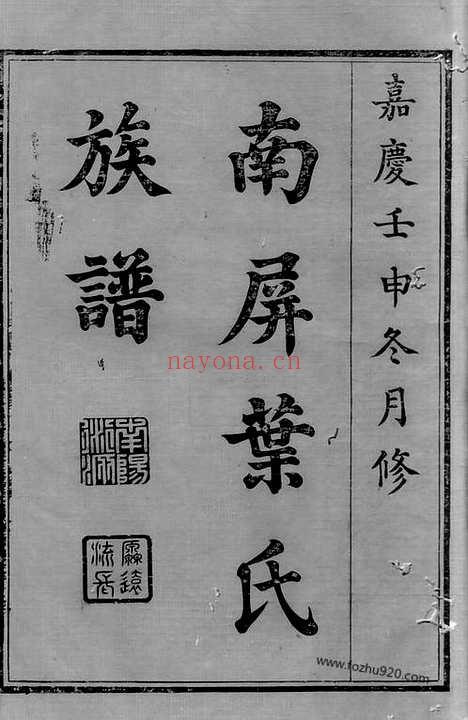 嘉慶壬申冬月修
南屏葉氏
族譜
南陽
遠
流長
nayona.cn
www.fozhu920.com